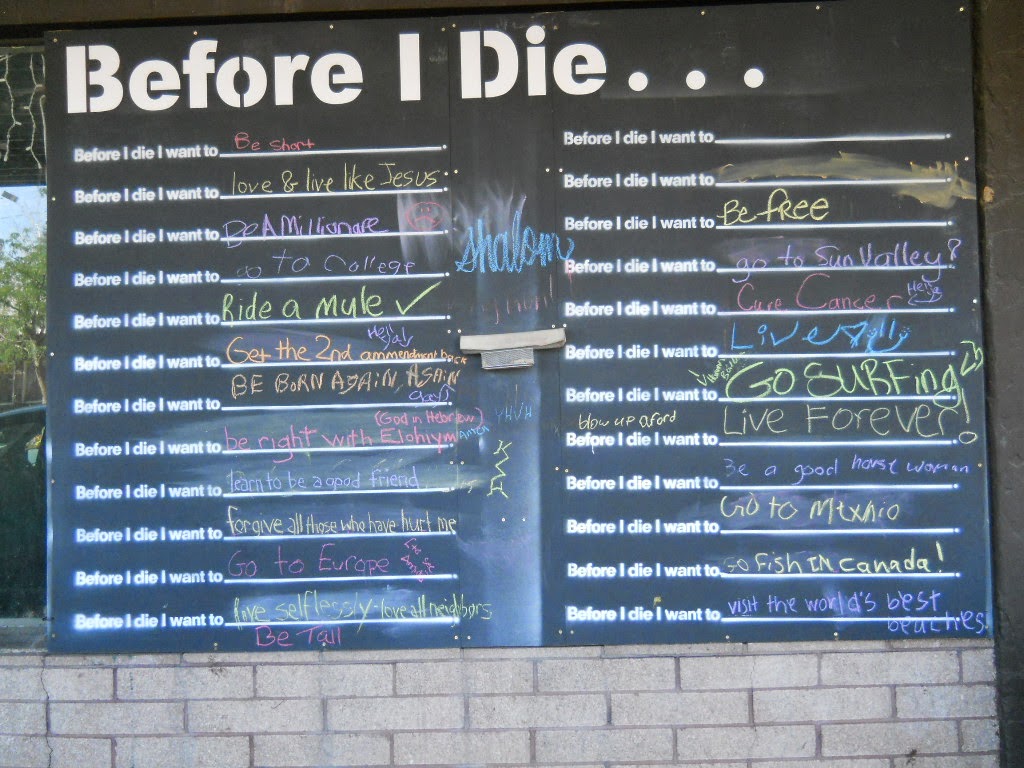 Before I Die...
Before I die I want to Be short.
Before I die I want to love & live like Jesus.
Before I die I want to Be A Millionare.
Before I die I want to go to College.
Before I die I want to Ride a mule ✓.
Hella!
Before I die I want to Get the 2nd ammendment back.
BE BORN AGAIN, AGAIN
Before I die I want to
(God in Hebrew)
Before I die I want to be right with Elohiym
Before I die I want to learn to be a good friend.
Before I die I want to forgive all those who have hurt me
Before I die I want to Go to Europe.
Before I die I want to live selflessly-love all neighbors
Be Tall
shalom
YHVH
Before I die I want to
Before I die I want to
Before I die I want to Be free
Before I die I want to go to Sun Valley?
Before I die I want to Cure Cancer
Hella
Before I die I want to Live
Before I die I want to GO SURFing!
blow up aford
Before I die I want to Live Forever!
Before I die I want to Be a good horse woman
Before I die I want to Go to Mexnio
Before I die I want to GO FISH IN Canada!
Before I die I want to visit the world's best
beaches.